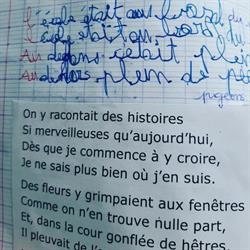 l'école était au fond du
l'école était au fond du
Au dedans c'était plein
Au dehors plein de pi
pigeons
On y racontait des histoires
Si merveilleuses qu'aujourd'hui,
Dès que je commence à y croire,
Je ne sais plus bien où j'en suis.
Des fleurs y grimpaient aux fenêtres
Comme on n'en trouve nulle part,
Et, dans la cour gonflée de hêtres,
Il pleuvait de l'